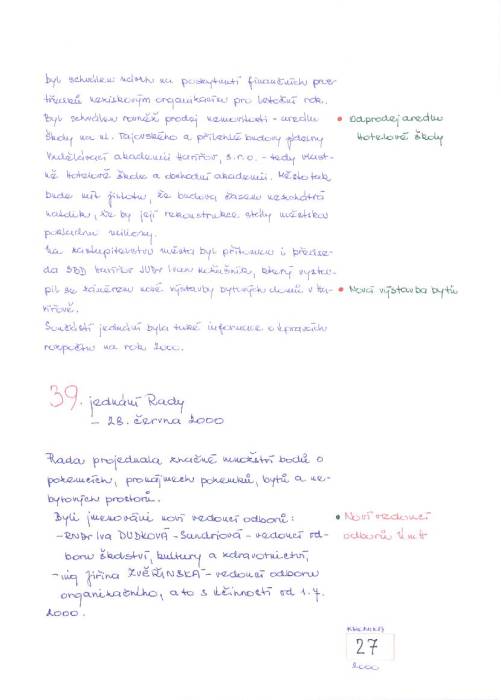 byl schválen návrh na poskytnutí finančních pros-
tředků neziskovým organizacím pro letošní rok.
Byl schválen rovněž prodej nemovitosti - areálu
školy na ul. Tajovského a přilehlé budovy jídelny
Vzdělávací akademii Havířov, s.r.o. - tedy vlast-
ně Hotelové škole a obchodní akademii. Město tak
bude mít jistotu, že budova časem nezchátrá
natolik, že by její rekonstrukce stály městskou
pokladnu miliony.
• Odprodej areálu
Hotelové školy
Na zastupitelstvu města byl přítomen i předse-
da SBD Havířov JUDr Ivan, který vystou-
pil se záměrem nové výstavby bytových domů v Ha-
vířově.
• Nová výstavba bytů
Součástí jednání byla také informace o úpravách
rozpočtu na rok 2000.
39. jednání Rady
- 28. června 2000
Rada projednala značné množství bodů o
pozemcích, pronájmech pozemků, bytů a ne-
bytových prostorů.
Byli jmenováni noví vedoucí odborů:
- RNDr Iva DUDKOVÁ - Sundriová - vedoucí od-
boru školství, kultury a zdravotnictví,
- ing Jiřina ZVĚŘINSKÁ - vedoucí odboru
organizačního, a to s účinností od 1.7.
2000.
• Noví vedoucí
odborů
27
2000